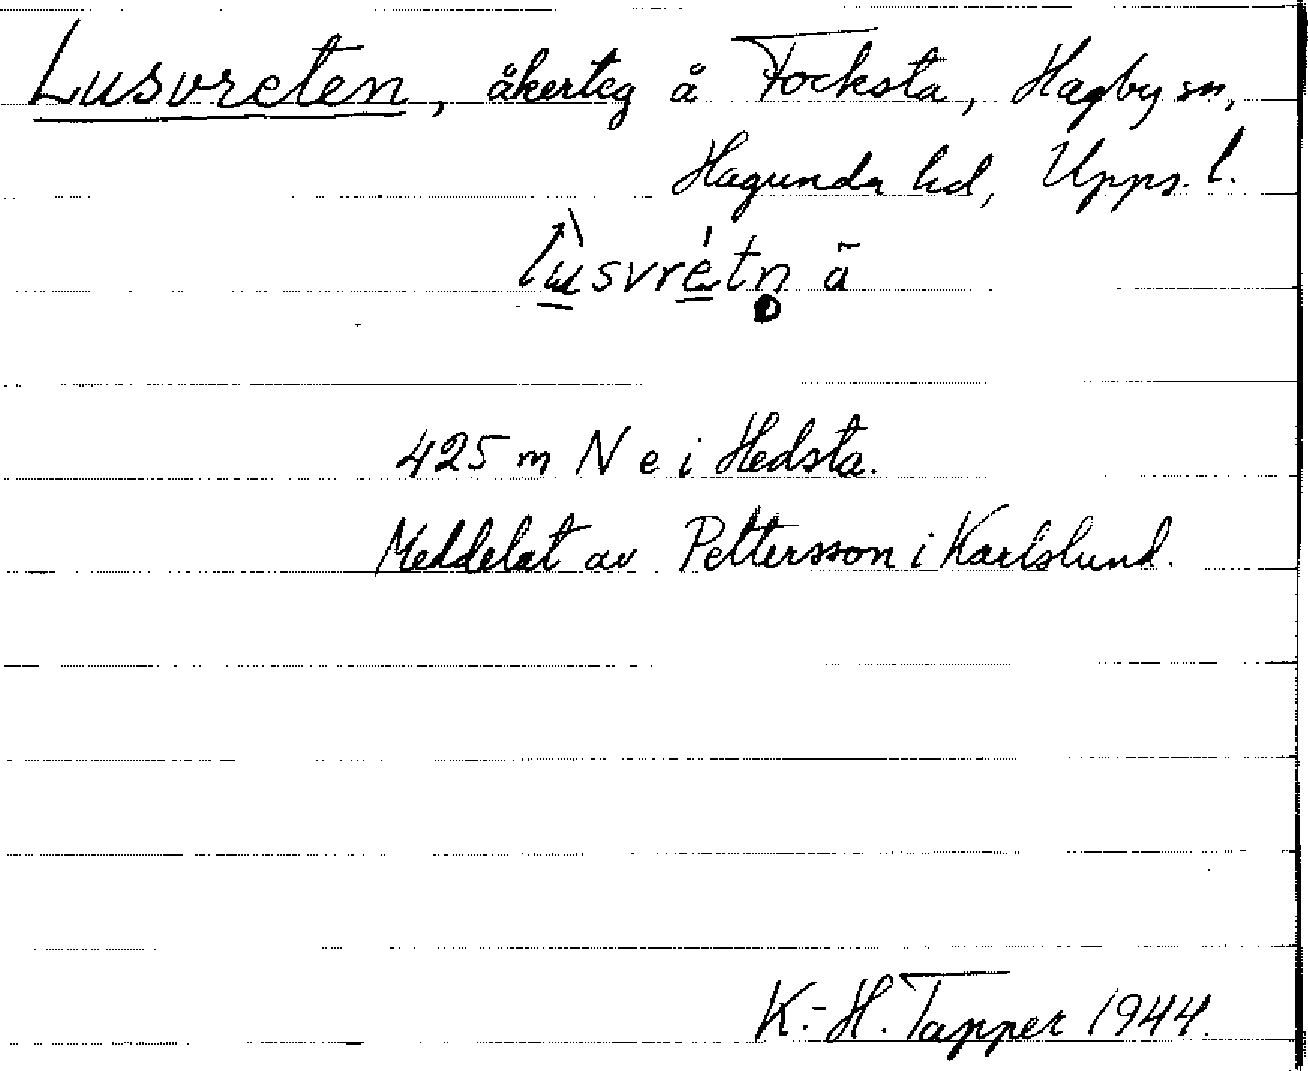 Lusvreten, åkerteg å Focksta, Hagby sn,
Hagunda hd, Upps. l.
lùsvrétn ā
425 m N e i Hedsta.
Meddelat av Pettersson i Karlslund.
K.-H. Tapper 1944.